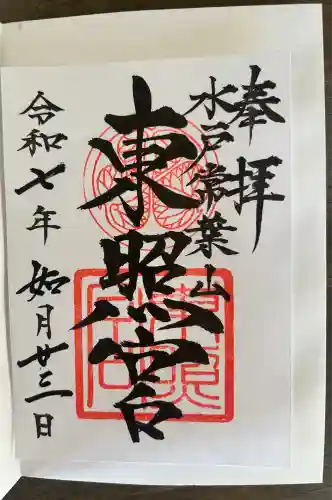 奉拝
水戸常葉山
東照宮
令和七年如月廿三日